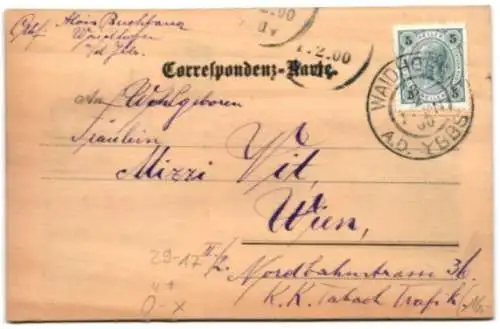 Abs: Alois Buchbauer
Waidhofen
a/d Ybbs.
.2.00
1.2.00
5 5
WAIDHOFEN
A.D. YBBS
Correspondenz-Karte.
An Wohlgeboren
Fräulein
Mizzi Vit,
Wien,
Nordbahnstrasse 36
K. K. Taback Trafik
29-17 II/2